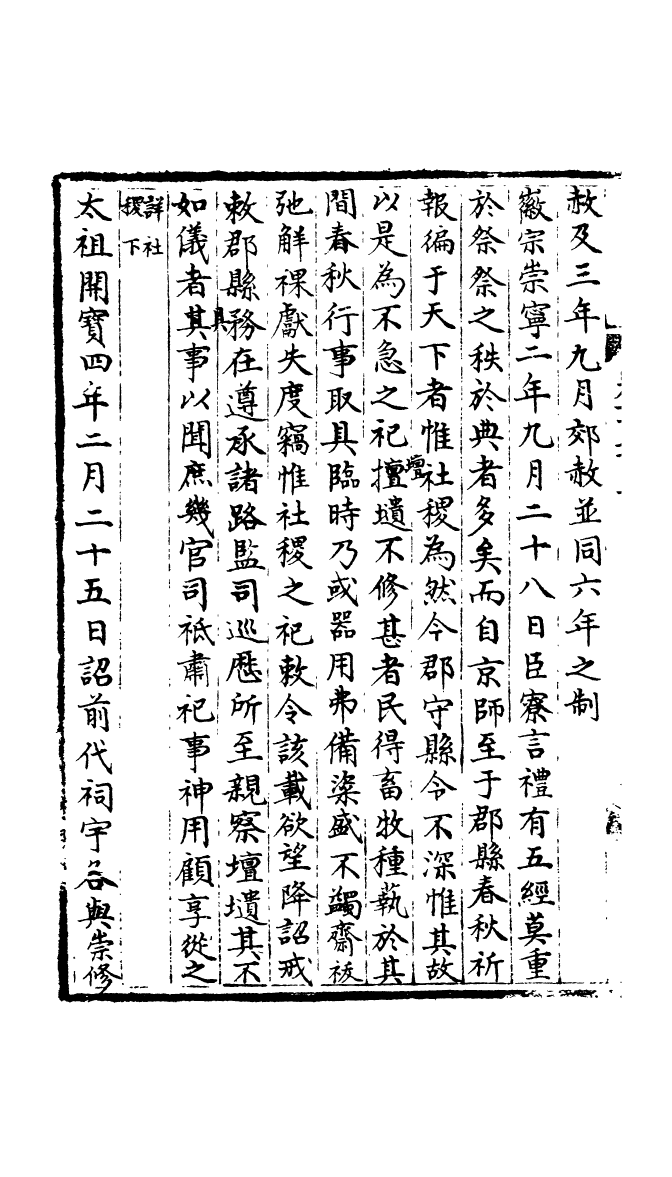 赦及三年九月郊赦並同六年之制
徽宗崇寧二年九月二十八日臣寮言禮有五經莫重
於祭祭之秩於典者多矣而自京師至于郡縣春秋祈
報徧于天下者惟社稷為然今郡守縣令不深惟其故
以是為不急之祀壇壝不修甚者民得畜牧種蓺於其
間春秋行事取具臨時乃或器用弗備粢盛不蠲齋祓
弛解祼獻失度竊惟社稷之祀敕令該載欲望降詔戒
敕郡縣務在遵承諸路監司巡歷所至親察壇壝其不
如儀者具其事以聞庶幾官司祗肅祀事神用顧享從之
詳社
稷下
太祖開寶四年二月二十五日詔前代祠宇各與崇修